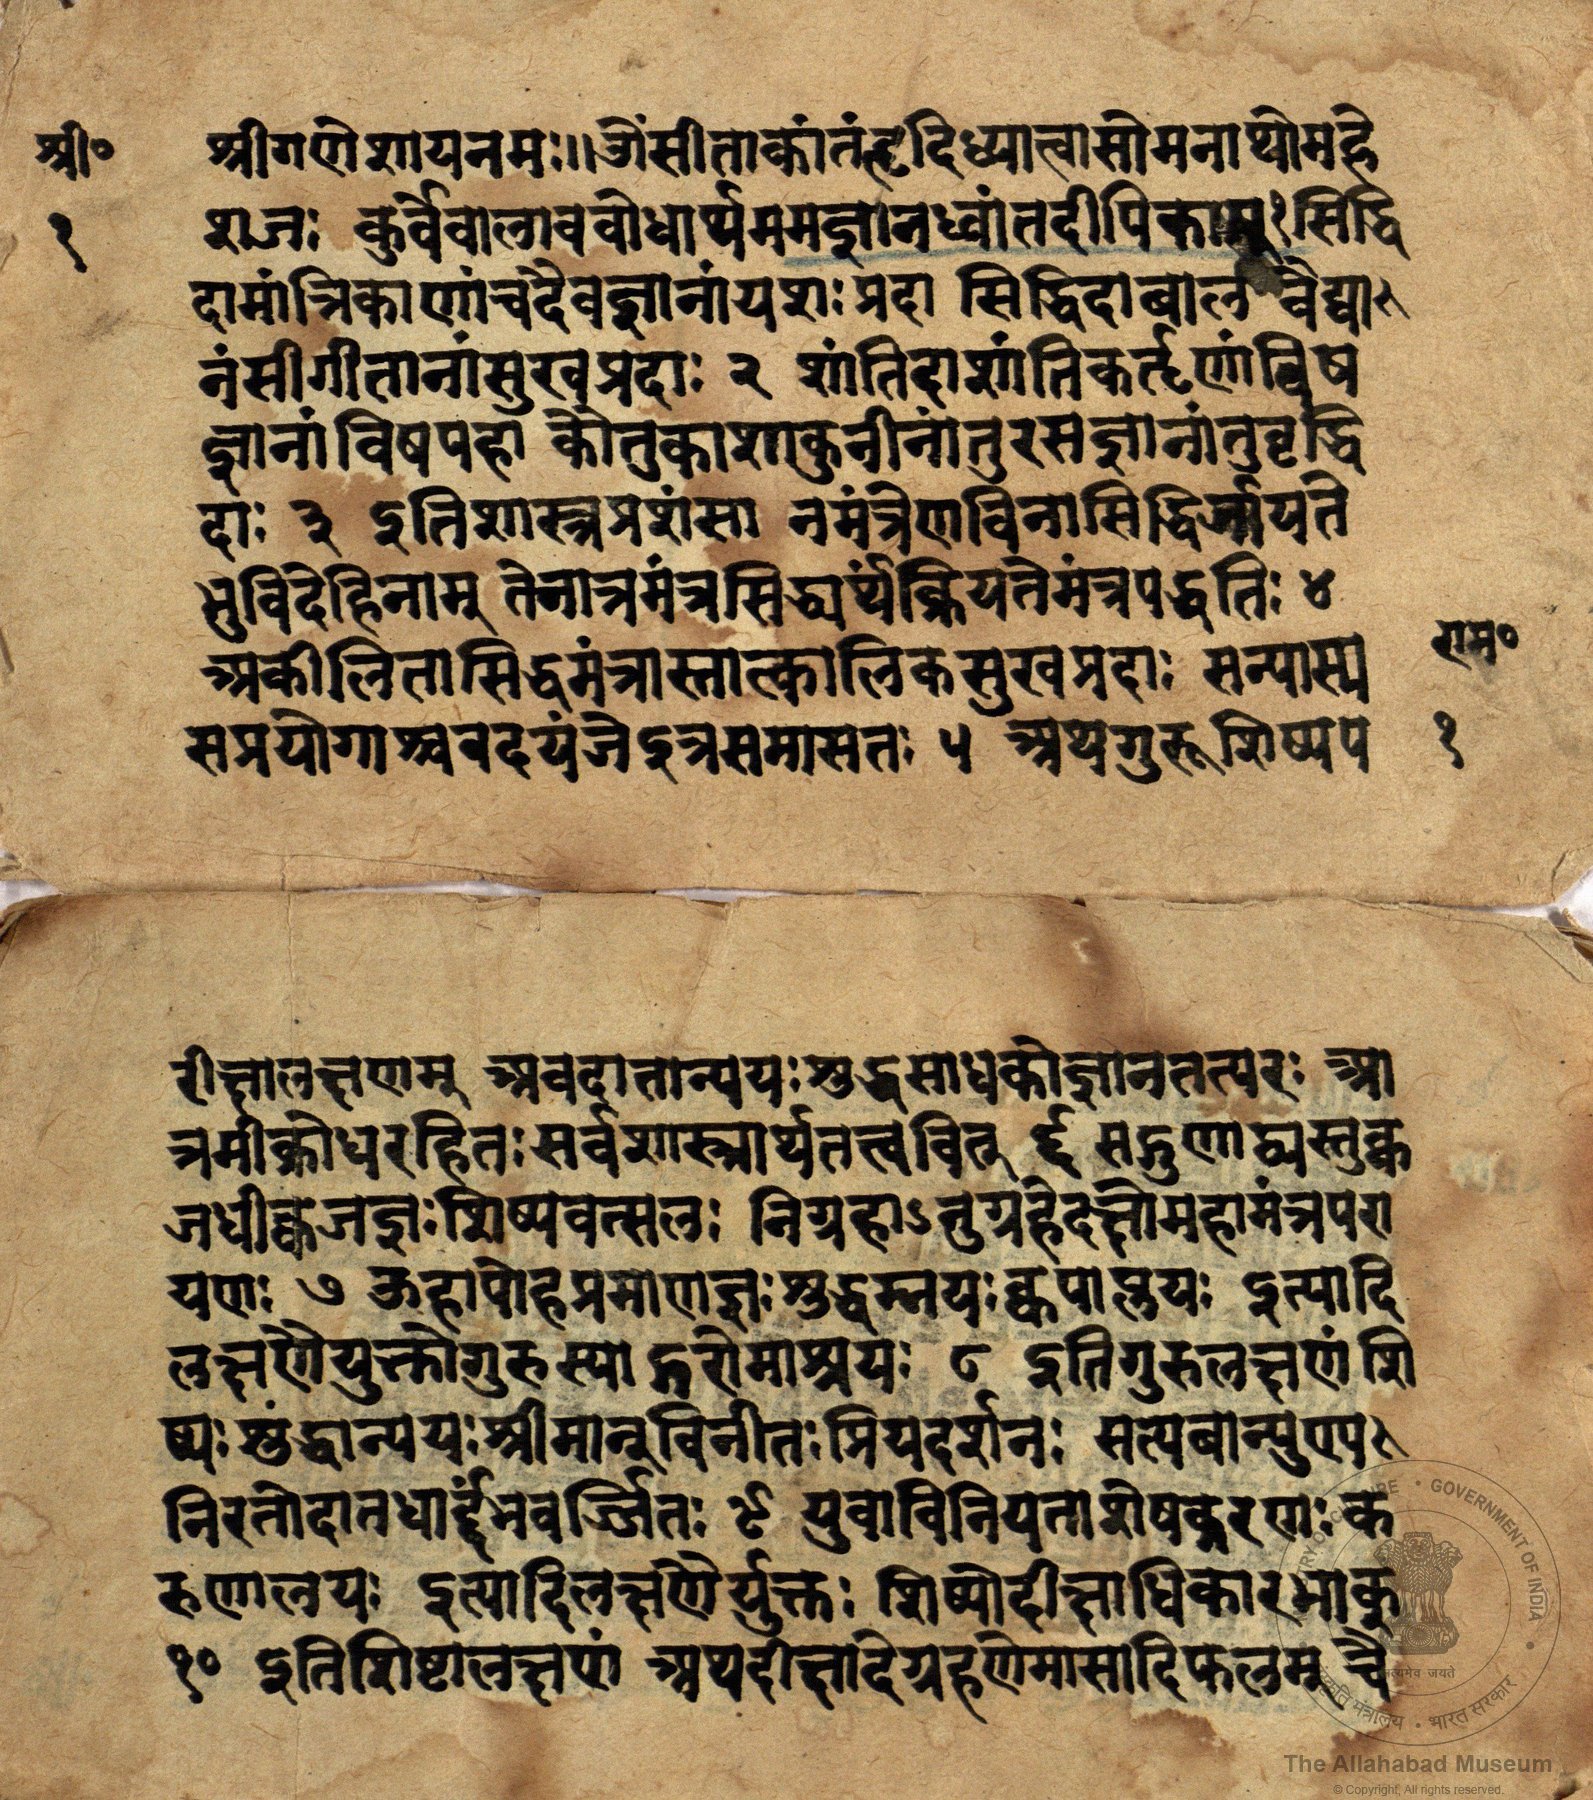 श्री०
श्रीगणेशायनमः॥ ओंसीताकांतंहृदिध्यात्वासोमनाथोमहे
१
शजः कुर्वेवालाववोधार्थमममज्ञानध्वांतदीपिकाम् १ सिद्धि
दामांत्रिकाणांचदैवज्ञानांयशःप्रदा सिद्धिदाबाल वैद्या
नंसीगीतानांसुखप्रदाः २ शांतिदाशांतिकर्तॄणांविष
ज्ञानांविषपहा कौतुकाशाकुनीनांतुरसज्ञानांतुवृद्धि
दाः ३ इतिशास्त्रप्रशंसा नमंत्रेणविनासिद्धिर्जायते
भुविदेहिनाम् तेनात्रमंत्रसिद्ध्यर्थंक्रियतेमंत्रपद्धतिः ४
अकीलितासिद्धमंत्रास्तात्कालिकसुखप्रदाः सन्यास्य
राम०
सप्रयोगाश्चवदयंजेऽत्रसमासतः ५ अथगुरूशिष्यप
१
रीक्षालक्षणम् अवदातान्वयःशुद्धसाधकोज्ञानतत्परः आ
त्रमीक्रोधरहितःसर्वशास्त्रार्थतत्त्ववित् ६ सद्गुणाढ्यस्तुक्व
जधीक्वजज्ञःशिष्यवत्सलः निग्रहाऽनुग्रहेदक्षोमहामंत्रपरा
यणः ७ ऊहापोहप्रमाणज्ञःशुद्धम्नयःकृपालयः इत्यादि
लक्षणैयुक्तोगुरुस्याद्गरोमाश्रयः ८ इतिगुरुलक्षणं शि
ष्यःशुंद्धान्वयःश्रीमान्विनीतःप्रियदर्शनः सत्यबान्पुण्य
निरतोदानधार्द्दंभवर्ज्जितः ९ युवाविनियताशेषकरणःक
रुणालयः इत्यादिलक्षणैर्युक्तः शिष्योदीक्षाधिकारभाक्
१० इतिशिष्टालक्षणं अथदीक्षादेग्रहणेमासादिफलम् चै
The Allahabad Museum
© Copyright, All rights reserved.